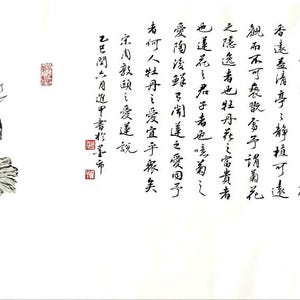 香远益清亭亭静植可远
观而不可亵玩焉予谓菊花
之隐逸者也牡丹花之富贵者
也莲花之君子者也噫菊之
爱陶后鲜有闻莲之爱同予
者何人牡丹之爱宜乎众矣
宋周敦颐之爱莲说
乙巳闰六月进甲书于